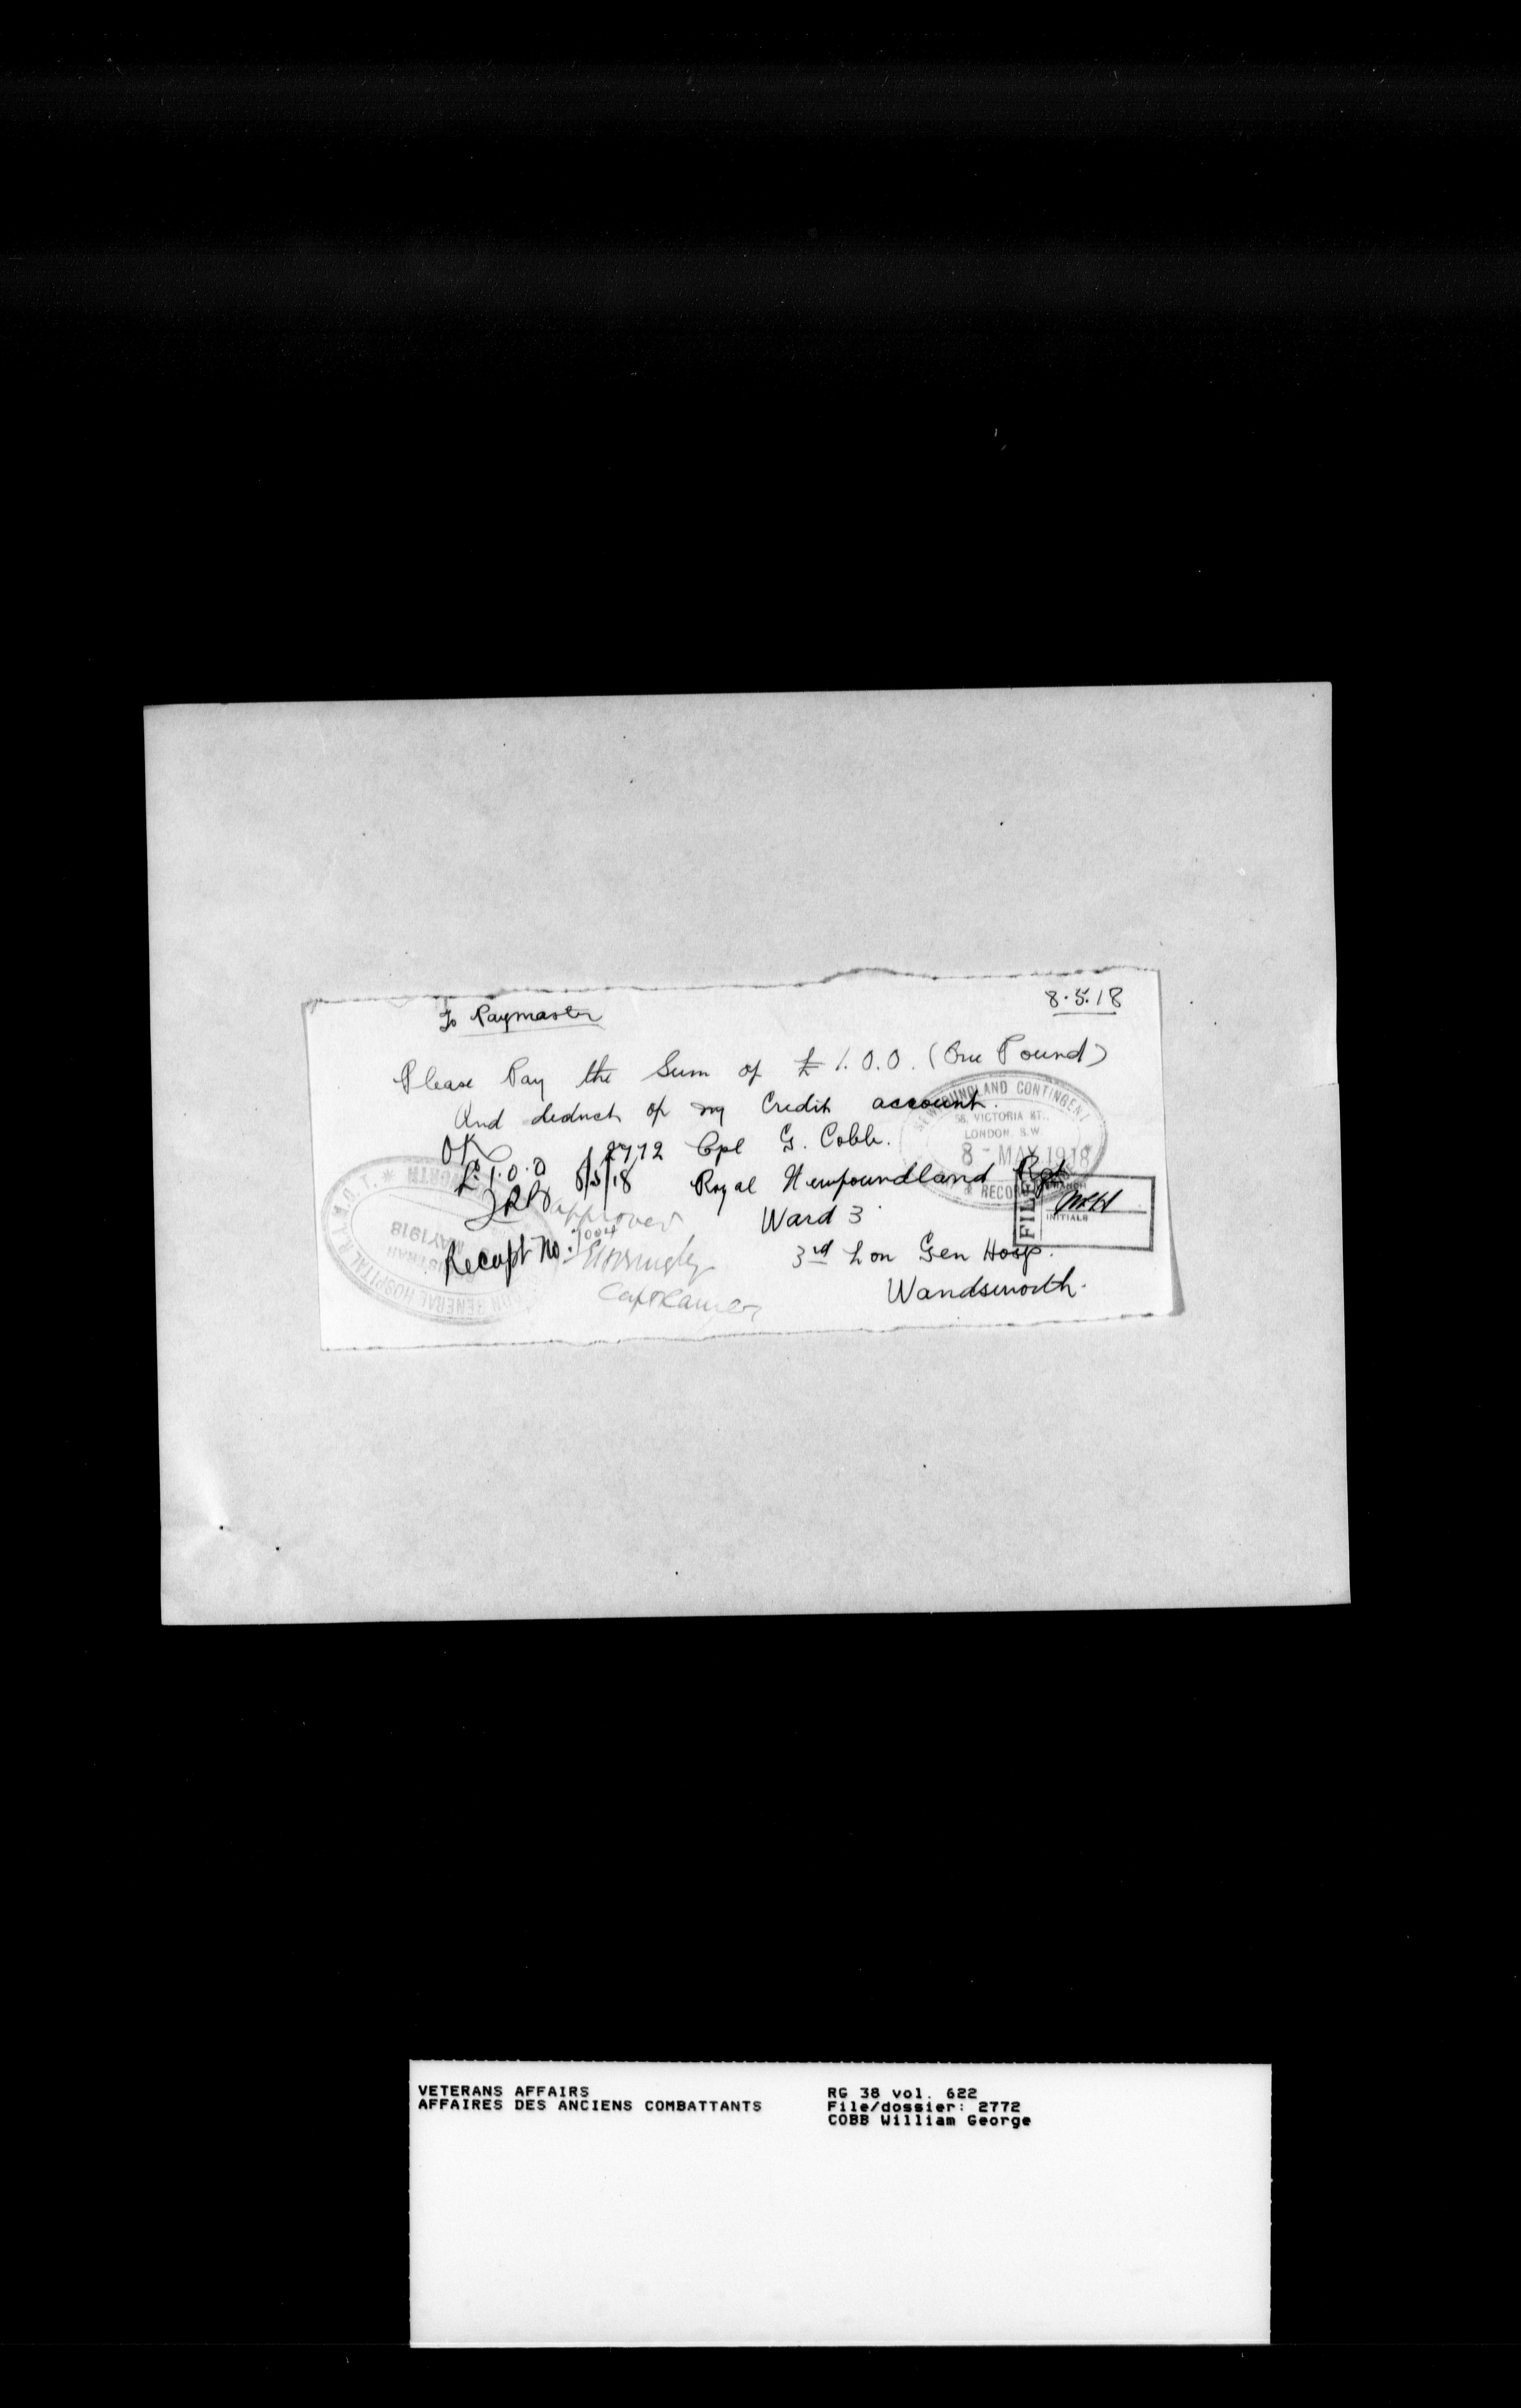 8.5.18
To Paymaster
Please Pay the Sum of £1.0.0. (One Pound)
And deduct of my Credit account.
OK 2772 Cpl G. Cobb.
£1.0.0 8/5/18 Royal Newfoundland Rgt
approved Ward 3
Recept No. 3rd Lon Gen Hosp.
Wandsworth.
NEWFOUNDLAND CONTINGENT
58, VICTORIA ST.,
LONDON, S.W.
8 - MAY 1918
& RECORD
FILE
INITIALS
GENERAL HOSPITAL R.A.M.C.T. *
MAY 1918
VETERANS AFFAIRS
AFFAIRES DES ANCIENS COMBATTANTS
RG 38 vol. 622
File/dossier: 2772
COBB William George